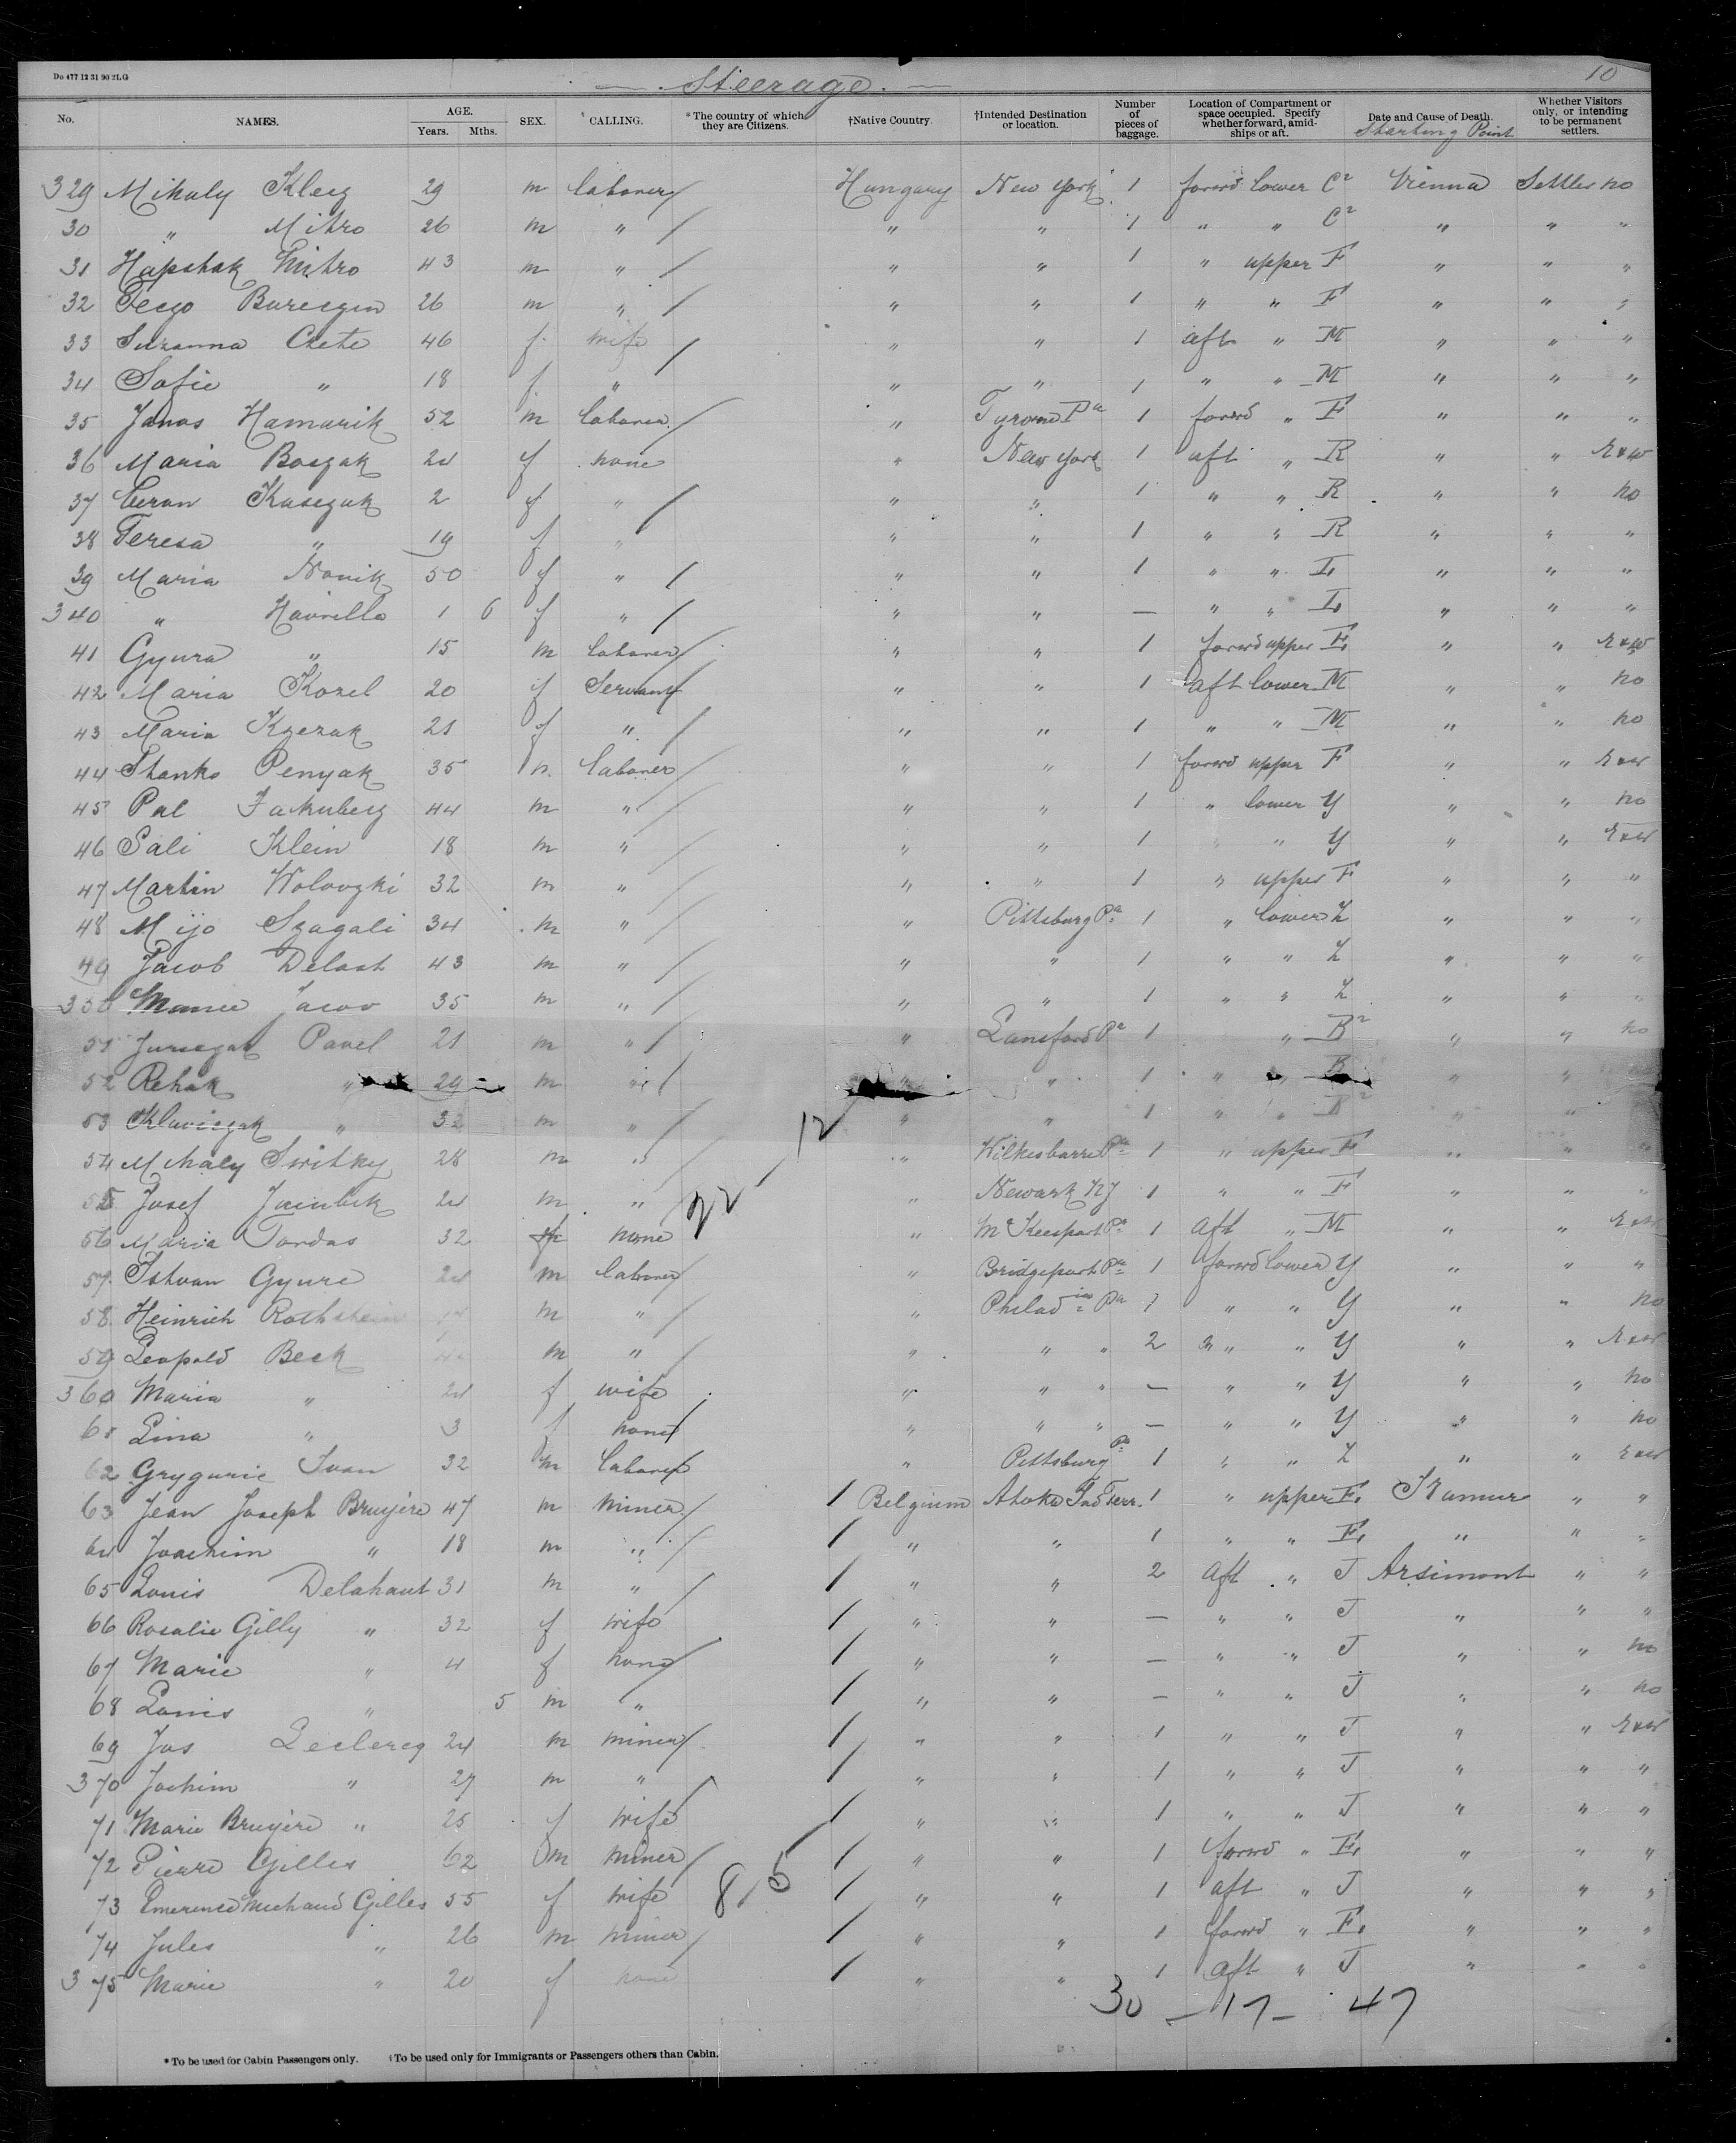 Do 477 12 31 90 2LG
Steerage.
10
No. NAMES. AGE. Years. Mths. SEX. CALLING. *The country of which they are Citizens. †Native Country. †Intended Destination or location. Number of pieces of baggage. Location of Compartment or space occupied. Specify whether forward, amidships or aft. Date and Cause of Death. Starting Point Whether Visitors only, or intending to be permanent settlers.
329 Mihaly 29 m laborer Hungary New York 1 forwd lower C2 Vienna Settler no
30 " Mitro 26 m " " " 1 " " C2 " " "
31 Hapshak Mitro 43 m " " " 1 " upper F " " "
32 26 m " " " 1 " " F " " "
33 Suzanna 46 f wife " " 1 aft " M " " "
34 Sofie " 18 f " " " 1 " " M " " "
35 Janos Hamarik 52 m laborer " Tyrone Pa 1 forwd " F " " "
36 Maria Boszak 24 f none " New York 1 aft " R " " R & W
37 2 f " " " 1 " " R " " no
38 Teresa " 19 f " " " 1 " " R " " "
39 Maria Novik 50 f " " " 1 " " " " "
340 " Havrilla 1 6 f " " " — " " " " "
41 Gyura " 15 m laborer " " 1 forwd upper " " R & W
42 Maria Kozel 20 f Servant " " 1 aft lower M " " no
43 Maria 21 f " " " 1 " " M " " no
44 Penyak 35 laborer " " 1 forwd upper F " " R & W
45 Pal 44 m " " " 1 " lower Y " " no
46 Sali Klein 18 m " " " 1 " " Y " " R & W
47 Martin 32 m " " " 1 " upper F " " "
48 Mijo Szagali 34 m " " Pittsburg Pa 1 " lower Z " " "
49 Jacob 43 m " " " 1 " " Z " " "
350 35 m " " " 1 " " Z " " "
51 Pavel 21 m " " Lansford Pa 1 " B2 " " no
52 Rehak " 29 m " " " 1 " " B " "
53 " 32 m " " " 1 " " " "
12
54 Mihaly 28 m " " Wilkesbarre Pa 1 " upper F " " "
55 Josef 24 m " " Newark NJ 1 " " F " " "
22
56 Maria Tordas 32 f none " McKeesport Pa 1 aft " M " "
57 Istvan Gyure 24 m laborer " Bridgeport Pa 1 forwd lower Y " " "
58 Heinrich Rothstein m " " Philad Pa 1 " " Y " " no
59 Leopold Beck m " " " " 2 " " Y " " R & W
360 Maria " 24 f wife " " " — " " Y " " no
61 Lina " 3 f none " " " — " " Y " " no
62 Ivan 32 m laborer " Pittsburg Pa 1 " " Z " " R & W
63 Jean Joseph Bruyère 47 m miner Belgium Atoka Ind Terr. 1 " upper Namur " "
64 Joachim " 18 m " " " 1 " " " " "
65 Louis Delahaut 31 m " " " 2 aft " J Arsimont " "
66 Rosalie Gilly " 32 f wife " " — " " J " " "
67 Marie " 4 f none " " — " " J " " no
68 Louis " 5 m " " " — " " J " " no
69 Jos Leclercq 24 m miner " " 1 " " J " " R & W
370 Jochim " 27 m " " " 1 " " J " " "
71 Marie Bruyère " 25 f wife " " 1 " " J " " "
72 Pierre Gilles 62 m miner " " 1 forwd " " " "
8 5
73 Gilles 55 f wife " " 1 aft " J " " "
74 Jules " 26 m miner " " 1 forwd " " " "
375 Marie " 20 f none " " 1 aft " J " " "
30 – 17 – 47
*To be used for Cabin Passengers only. †To be used only for Immigrants or Passengers others than Cabin.